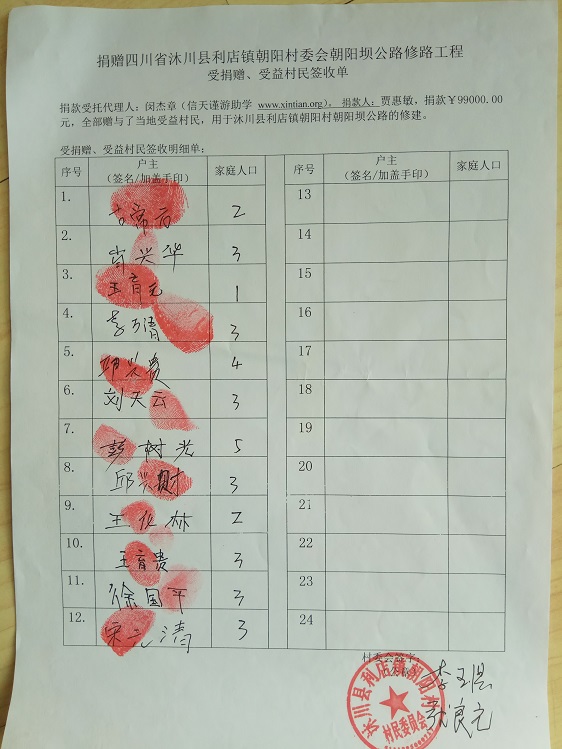 捐赠四川省沐川县利店镇朝阳村委会朝阳坝公路修路工程
受捐赠、受益村民签收单
捐款受托代理人：闵杰章（信天谨游助学 www.xintian.org），捐款人：贾惠敏，捐款￥99000.00
元，全部赠与了当地受益村民，用于沐川县利店镇朝阳村朝阳坝公路的修建。
受捐赠、受益村民签收明细单：
序号 户主（签名/加盖手印） 家庭人口 序号 户主（签名/加盖手印） 家庭人口
1. 2 13
2. 肖兴华 3 14
3. 王育元 1 15
4. 李清 3 16
5. 邱兴贵 4 17
6. 刘天云 3 18
7. 彭树光 5 19
8. 邱兴财 3 20
9. 王仕林 2 21
10. 王育贵 3 22
11. 徐国平 3 23
12. 宋元清 3 24
村委会签字
沐川县利店镇朝阳村
村民委员会
李玉
良元